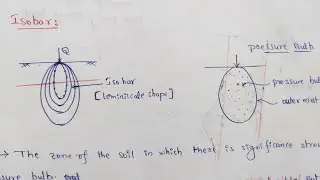 Isobars
pressure bulb
Q
Isobar
[Leminiscate shape]
pressure bul
outer most
→ The zone of the soil in which there is significance stre
ssure bulb.